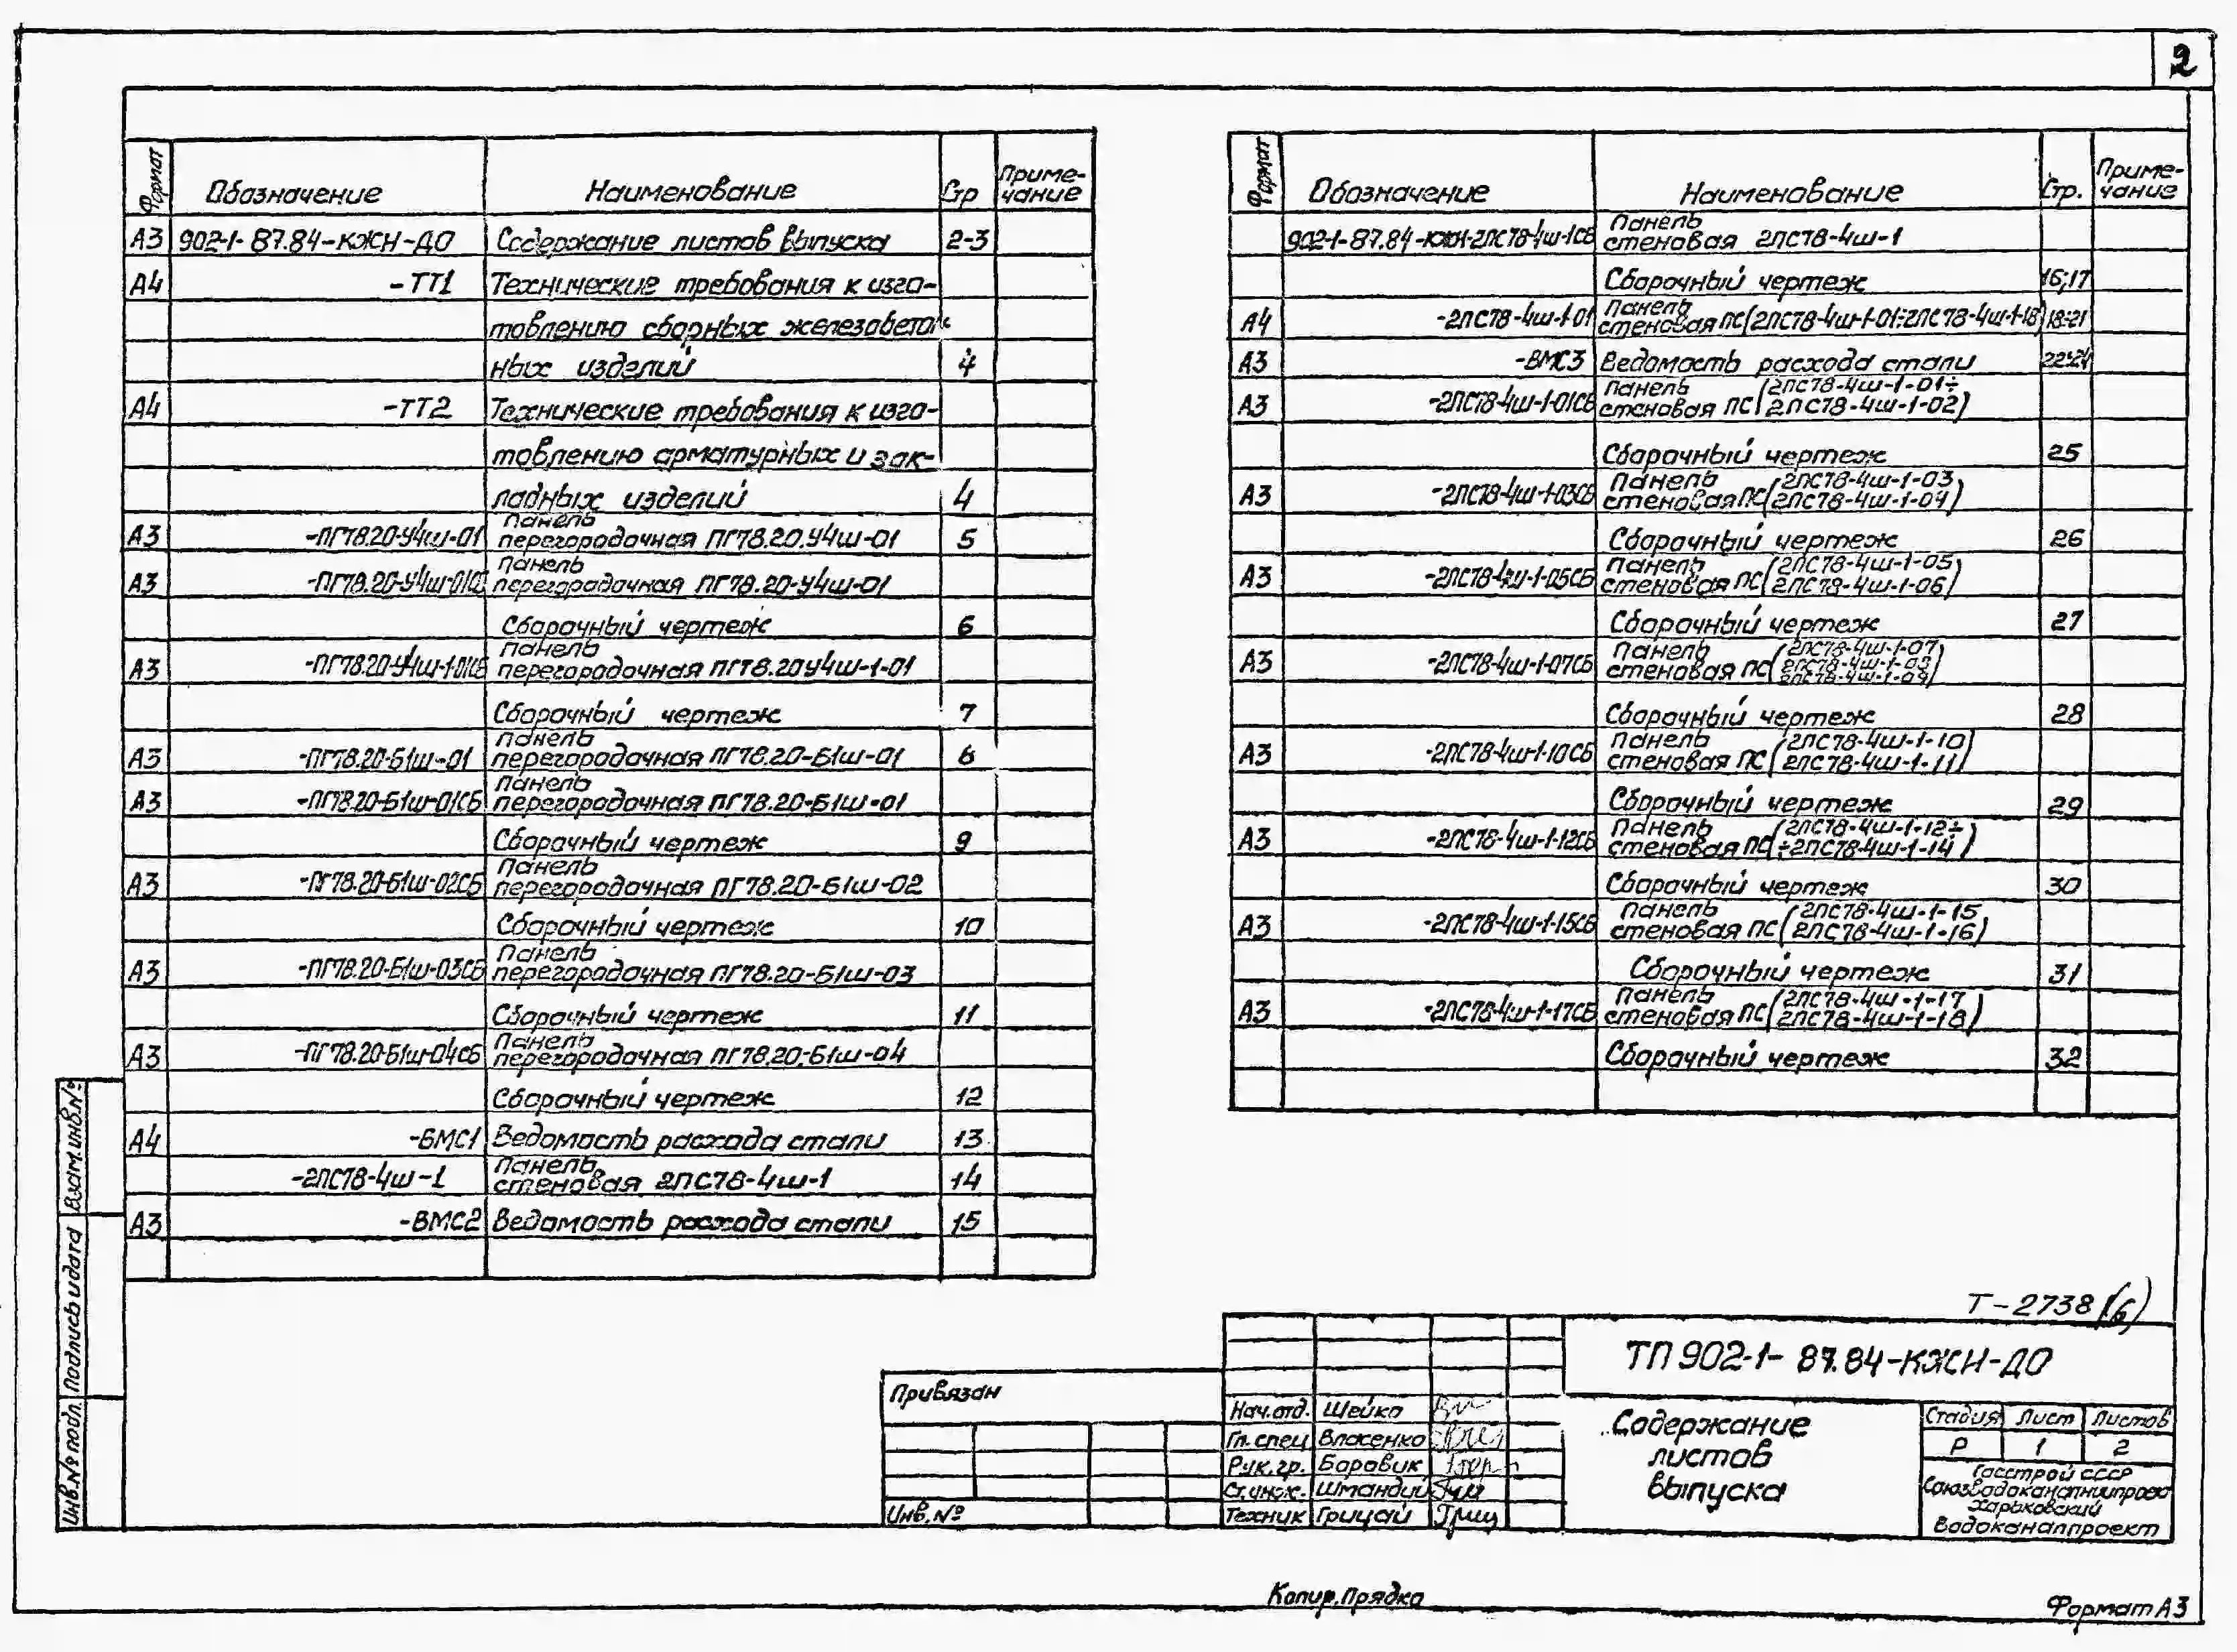 2
Формат Обозначение Наименование Стр Приме-чание
А3 902-1-87.84-КЖН-ДО Содержание листов выпуска 2-3
А4 -ТТ1 Технические требования к изго-
товлению сборных железобетон-
ных изделий 4
А4 -ТТ2 Технические требования к изго-
товлению арматурных и зак-
ладных изделий 4
Панель
А3 -ПГ78.20-У4ш-01 перегородочная ПГ78.20.У4ш-01 5
Панель
А3 -ПГ78.20-У4ш-01СБ перегородочная ПГ78.20-У4ш-01
Сборочный чертеж 6
Панель
А3 -ПГ78.20-У4ш-1-01СБ перегородочная ПГ78.20У4ш-1-01
Сборочный чертеж 7
Панель
А3 -ПГ78.20-Б1ш-01 перегородочная ПГ78.20-Б1ш-01 8
Панель
А3 -ПГ78.20-Б1ш-01СБ перегородочная ПГ78.20-Б1ш-01
Сборочный чертеж 9
Панель
А3 -ПГ78.20-Б1ш-02СБ перегородочная ПГ78.20-Б1ш-02
Сборочный чертеж 10
Панель
А3 -ПГ78.20-Б1ш-03СБ перегородочная ПГ78.20-Б1ш-03
Сборочный чертеж 11
Панель
А3 -ПГ78.20-Б1ш-04СБ перегородочная ПГ78.20-Б1ш-04
Сборочный чертеж 12
А4 -БМС1 Ведомость расхода стали 13
Панель
-2ПС78-4ш-1 стеновая 2ПС78-4ш-1 14
А3 -ВМС2 Ведомость расхода стали 15
Формат Обозначение Наименование Стр. Приме-чание
Панель
902-1-87.84-КЖН-2ПС78-4ш-1СБ стеновая 2ПС78-4ш-1
Сборочный чертеж 16;17
Панель
А4 -2ПС78-4ш-1-01 стеновая ПС(2ПС78-4ш-1-01÷2ПС78-4ш-1-18) 18÷21
А3 -ВМС3 Ведомость расхода стали 22÷24
Панель (2ПС78-4ш-1-01÷
А3 -2ПС78-4ш-1-01СБ стеновая ПС 2ПС78-4ш-1-02)
Сборочный чертеж 25
Панель (2ПС78-4ш-1-03
А3 -2ПС78-4ш-1-03СБ стеновая ПС 2ПС78-4ш-1-04)
Сборочный чертеж 26
Панель (2ПС78-4ш-1-05
А3 -2ПС78-4ш-1-05СБ стеновая ПС 2ПС78-4ш-1-06)
Сборочный чертеж 27
Панель (2ПС78-4ш-1-07
А3 -2ПС78-4ш-1-07СБ стеновая ПС 2ПС78-4ш-1-08
2ПС78-4ш-1-09)
Сборочный чертеж 28
Панель (2ПС78-4ш-1-10
А3 -2ПС78-4ш-1-10СБ стеновая ПС 2ПС78-4ш-1-11)
Сборочный чертеж 29
Панель (2ПС78-4ш-1-12÷
А3 -2ПС78-4ш-1-12СБ стеновая ПС ÷2ПС78-4ш-1-14)
Сборочный чертеж 30
Панель (2ПС78-4ш-1-15
А3 -2ПС78-4ш-1-15СБ стеновая ПС 2ПС78-4ш-1-16)
Сборочный чертеж 31
Панель (2ПС78-4ш-1-17
А3 -2ПС78-4ш-1-17СБ стеновая ПС 2ПС78-4ш-1-18)
Сборочный чертеж 32
Инв.№ подл. Подпись и дата Взам.инв.№
Т-2738 (6)
ТП 902-1-87.84-КЖН-ДО
Привязан
Инв.№
Нач.отд. Шейко
Гл.спец Власенко
Рук.гр. Боровик
Ст.инж. Шмандий
Техник Грицай
Содержание
листов
выпуска
Стадия Лист Листов
Р 1 2
Госстрой СССР
Союзводоканалниипроект
Харьковский
Водоканалпроект
Копир.Прядка
Формат А3